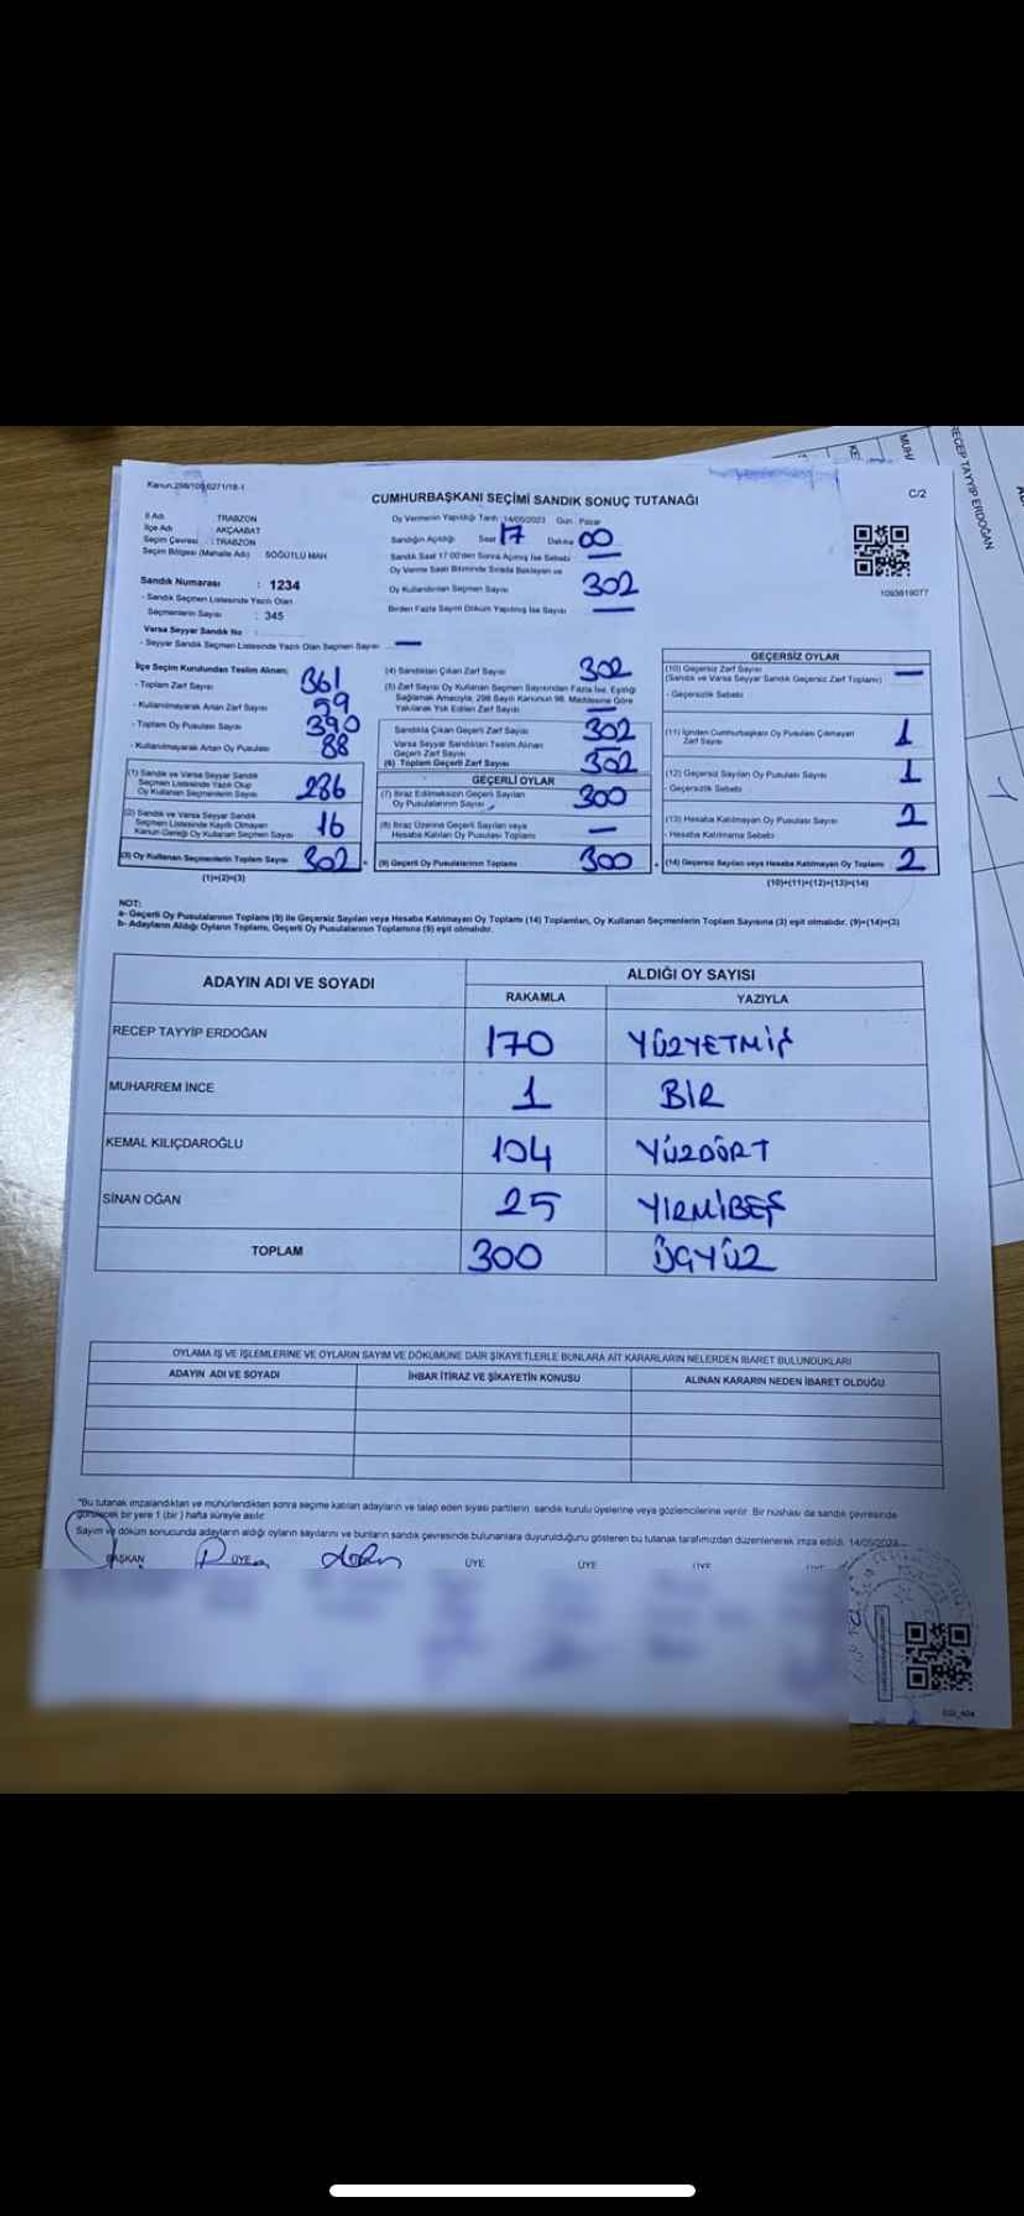 Kanun:298/105,6271/18-1
C/2
CUMHURBAŞKANI SEÇİMİ SANDIK SONUÇ TUTANAĞI
İl Adı : TRABZON
İlçe Adı : AKÇAABAT
Seçim Çevresi : TRABZON
Seçim Bölgesi (Mahalle Adı) SÖĞÜTLÜ MAH
Sandık Numarası : 1234
- Sandık Seçmen Listesinde Yazılı Olan
Seçmenlerin Sayısı : 345
Varsa Seyyar Sandık No :
- Seyyar Sandık Seçmen Listesinde Yazılı Olan Seçmen Sayısı —
Oy Vermenin Yapıldığı Tarih :14/05/2023 Gün: Pazar
Sandığın Açıldığı Saat 17 Dakika 00
Sandık Saat 17:00'den Sonra Açılmış İse Sebebi —
Oy Verme Saati Bitiminde Sırada Bekleyen ve
Oy Kullandırılan Seçmen Sayısı 302
Birden Fazla Sayım Döküm Yapılmış İse Sayısı —
1093619077
İlçe Seçim Kurulundan Teslim Alınan;
- Toplam Zarf Sayısı 361
- Kullanılmayarak Artan Zarf Sayısı 59
- Toplam Oy Pusulası Sayısı 390
- Kullanılmayarak Artan Oy Pusulası 88
(1) Sandık ve Varsa Seyyar Sandık
Seçmen Listesinde Yazılı Olup
Oy Kullanan Seçmenlerin Sayısı 286
(2) Sandık ve Varsa Seyyar Sandık
Seçmen Listesinde Kayıtlı Olmayan
Kanun Gereği Oy Kullanan Seçmen Sayısı 16
(3) Oy Kullanan Seçmenlerin Toplam Sayısı 302
(1)+(2)=(3)
(4) Sandıktan Çıkan Zarf Sayısı 302
(5) Zarf Sayısı Oy Kullanan Seçmen Sayısından Fazla İse, Eşitliği
Sağlamak Amacıyla, 298 Sayılı Kanunun 98. Maddesine Göre
Yakılarak Yok Edilen Zarf Sayısı —
Sandıkta Çıkan Geçerli Zarf Sayısı 302
Varsa Seyyar Sandıktan Teslim Alınan
Geçerli Zarf Sayısı
(6) Toplam Geçerli Zarf Sayısı 302
GEÇERLİ OYLAR
(7) İtiraz Edilmeksizin Geçerli Sayılan
Oy Pusulalarının Sayısı 300
(8) İtiraz Üzerine Geçerli Sayılan veya
Hesaba Katılan Oy Pusulası Toplamı —
(9) Geçerli Oy Pusulalarının Toplamı 300
GEÇERSİZ OYLAR
(10) Geçersiz Zarf Sayısı —
(Sandık ve Varsa Seyyar Sandık Geçersiz Zarf Toplamı)
- Geçersizlik Sebebi
(11) İçinden Cumhurbaşkanı Oy Pusulası Çıkmayan
Zarf Sayısı 1
(12) Geçersiz Sayılan Oy Pusulası Sayısı 1
- Geçersizlik Sebebi
(13) Hesaba Katılmayan Oy Pusulası Sayısı 2
- Hesaba Katılmama Sebebi
(14) Geçersiz Sayılan veya Hesaba Katılmayan Oy Toplamı 2
(10)+(11)+(12)+(13)=(14)
NOT:
a- Geçerli Oy Pusulalarının Toplamı (9) ile Geçersiz Sayılan veya Hesaba Katılmayan Oy Toplamı (14) Toplamları, Oy Kullanan Seçmenlerin Toplam Sayısına (3) eşit olmalıdır. (9)+(14)=(3)
b- Adayların Aldığı Oyların Toplamı, Geçerli Oy Pusulalarının Toplamına (9) eşit olmalıdır.
ADAYIN ADI VE SOYADI ALDIĞI OY SAYISI
RAKAMLA YAZIYLA
RECEP TAYYİP ERDOĞAN 170 YÜZYETMİŞ
MUHARREM İNCE 1 BİR
KEMAL KILIÇDAROĞLU 104 YÜZDÖRT
SİNAN OĞAN 25 YİRMİBEŞ
TOPLAM 300 ÜÇYÜZ
OYLAMA İŞ VE İŞLEMLERİNE VE OYLARIN SAYIM VE DÖKÜMÜNE DAİR ŞİKAYETLERLE BUNLARA AİT KARARLARIN NELERDEN İBARET BULUNDUKLARI
ADAYIN ADI VE SOYADI İHBAR İTİRAZ VE ŞİKAYETİN KONUSU ALINAN KARARIN NEDEN İBARET OLDUĞU
"Bu tutanak imzalandıktan ve mühürlendikten sonra seçime katılan adayların ve talep eden siyasi partilerin sandık kurulu üyelerine veya gözlemcilerine verilir. Bir nüshası da sandık çevresinde
görülecek bir yere 1 (bir ) hafta süreyle asılır.
Sayım ve döküm sonucunda adayların aldığı oyların sayılarını ve bunların sandık çevresinde bulunanlara duyurulduğunu gösteren bu tutanak tarafımızdan düzenlenerek imza edildi. 14/05/2023
BAŞKAN ÜYE ÜYE ÜYE ÜYE
RECEP TAYYİP ERDOĞAN
MUH
KE